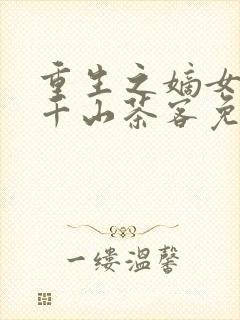 重生之嫡女
千山茶客免
一缕温馨